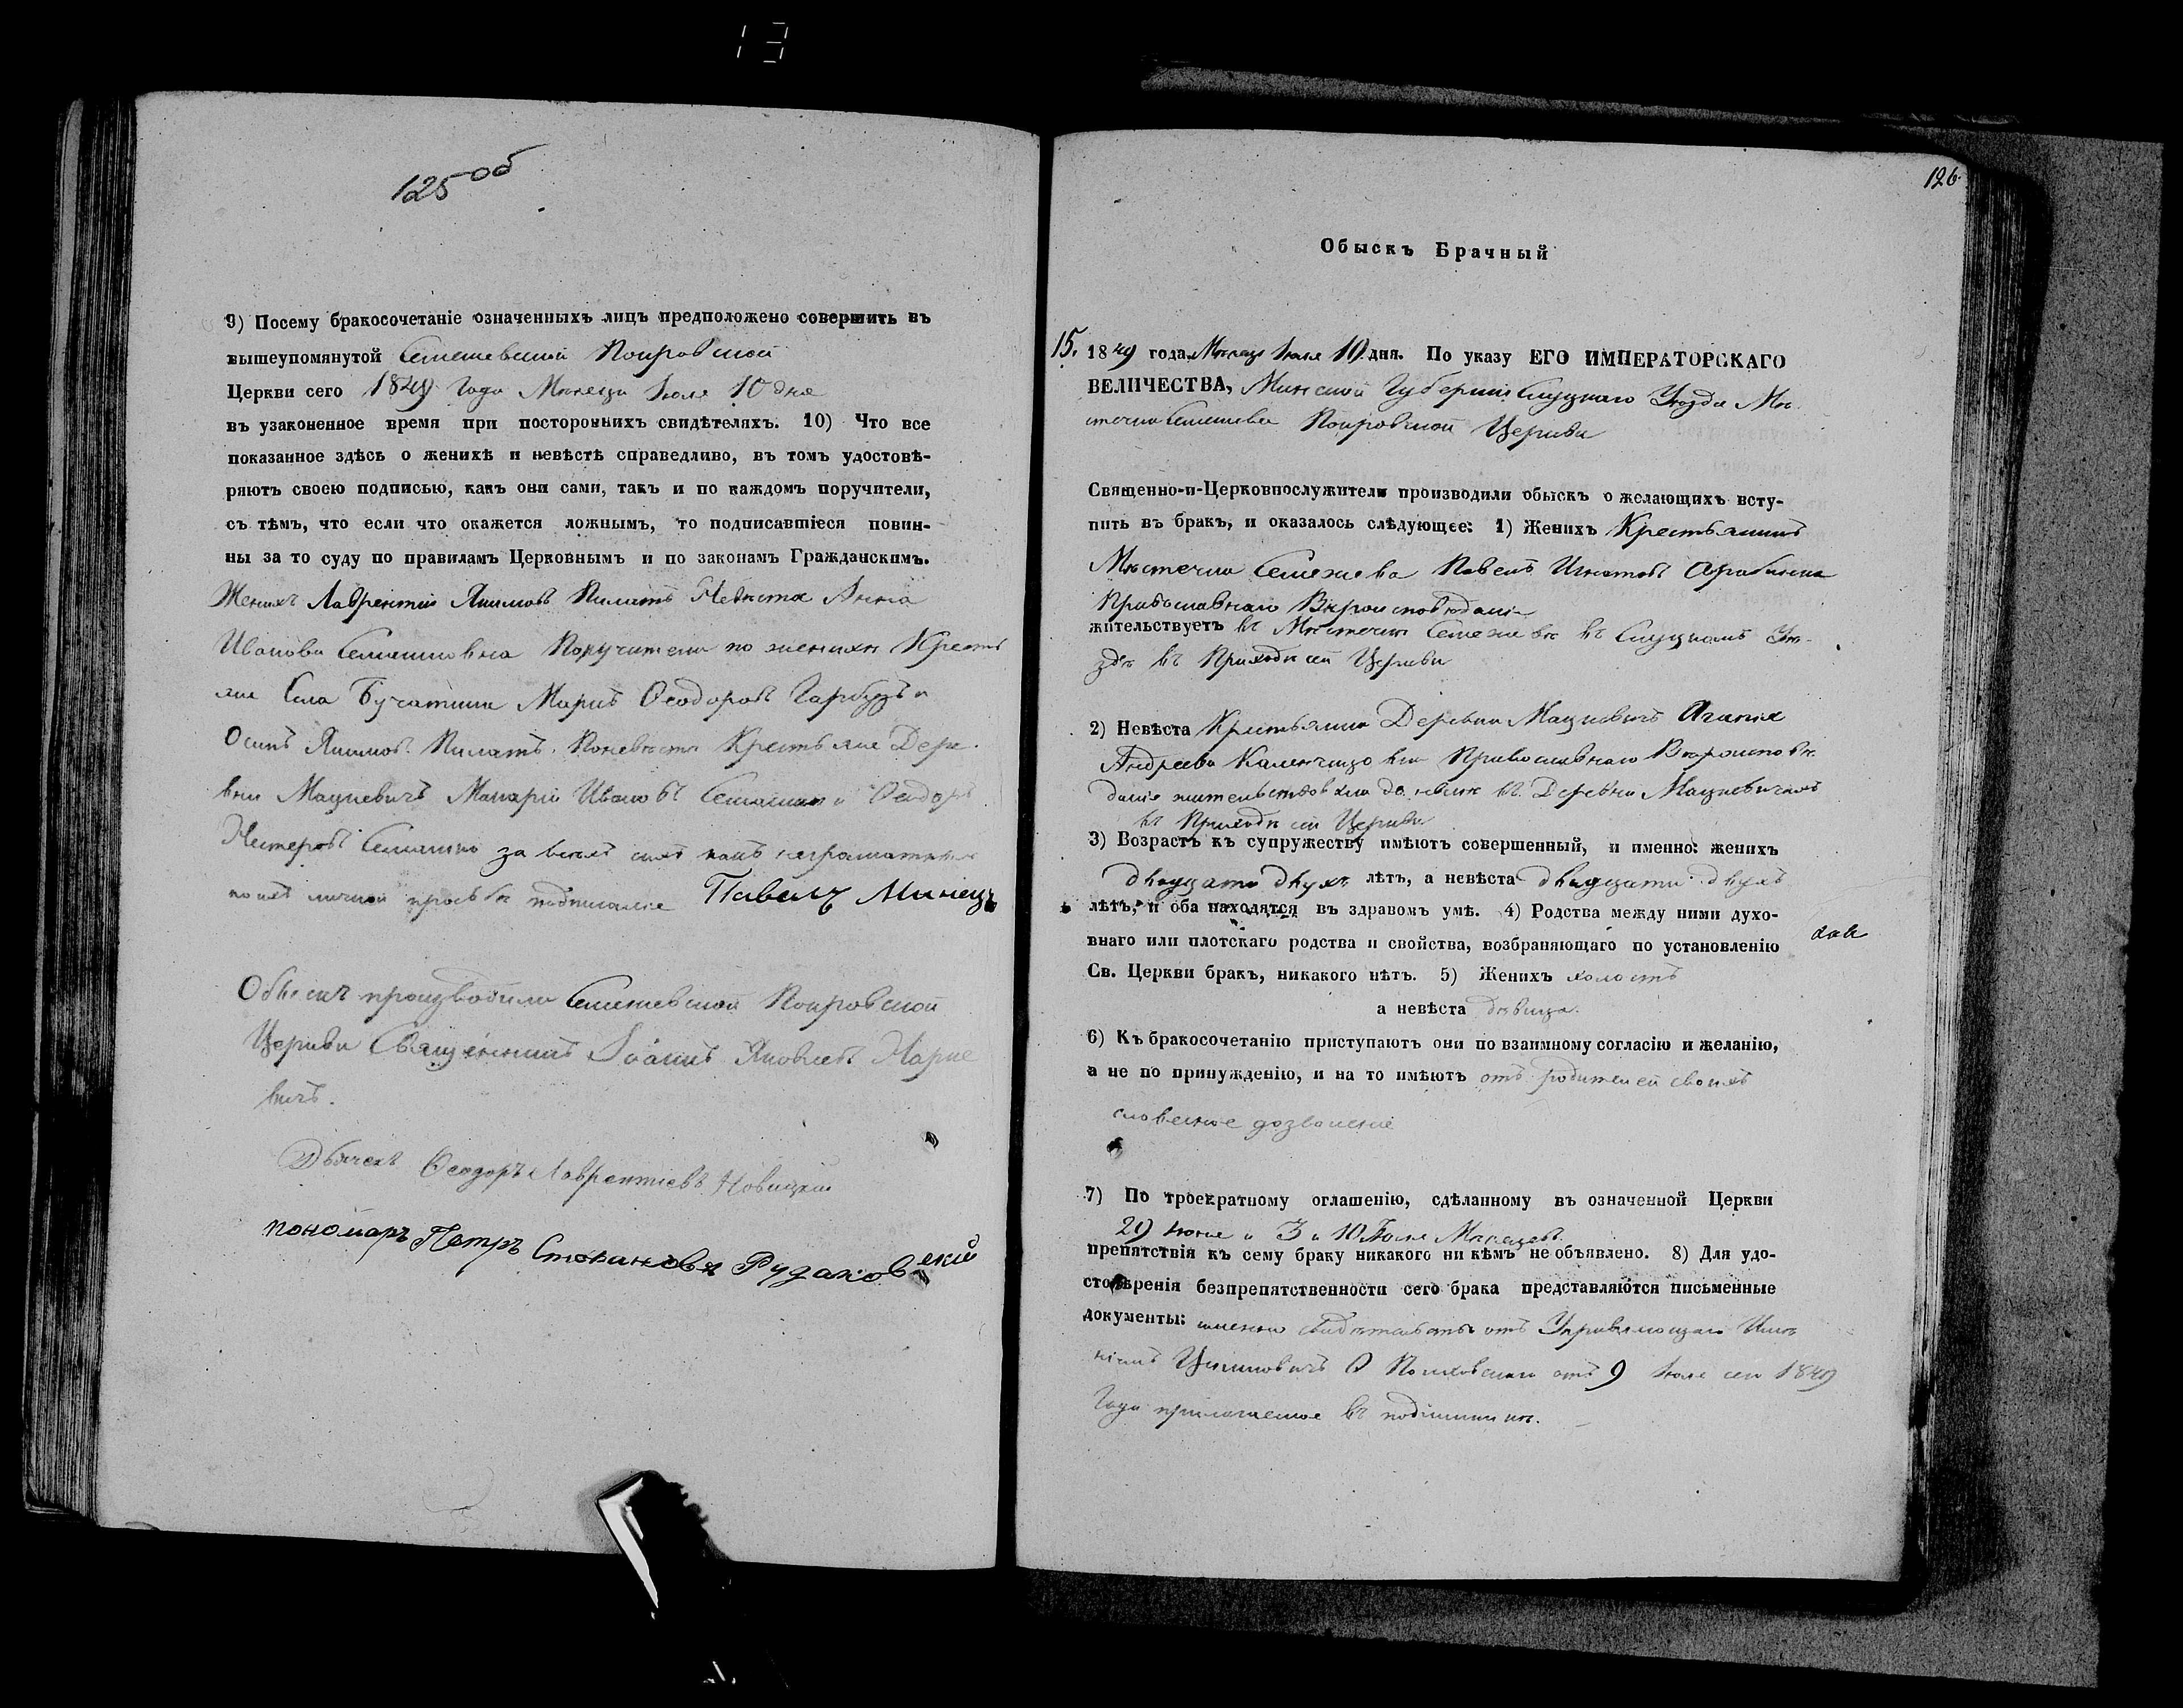 13
125 об
9) Посему бракосочетаніе означенныхъ лицъ предположено совершить въ
вышеупомянутой Семежевской Покровской
Церкви сего 1849 Года Мѣсяца Іюля 10 дня
въ узаконенное время при постороннихъ свидѣтеляхъ. 10) Что все
показанное здѣсь о женихѣ и невѣстѣ справедливо, въ томъ удостовѣ-
ряютъ своею подписью, какъ они сами, такъ и по каждомъ поручители,
съ тѣмъ, что если что окажется ложнымъ, то подписавшіеся повин-
ны за то суду по правиламъ Церковнымъ и по законамъ Гражданскимъ.
Женихъ Лаврентій Якимовъ Пилатъ Невѣста Анна
Иванова Поручители по женихѣ Крестья
не Села Бучатина Марко Ѳеодоровъ Гарбузъ и
Осипъ Якимовъ Пилатъ. По невѣстѣ Крестьяне Дере-
вни Мацкевичъ Макарій Ивановъ и Ѳеодоръ
Нестеровъ за всѣхъ ихъ какъ неграмотныхъ
по ихъ личной прозьбѣ подписался Павелъ Минецъ
Обыскъ производили Семежевской Покровской
Церкви Священникъ Іоаннъ Яковлевъ Нарке
вичъ.
Дьячекъ Ѳеодоръ Лаврентіевъ Новицкій
пономаръ Петръ Стефановъ Рудаковскій
126
Обыскъ Брачный
15. 1849 года Мѣсяца Іюля 10 дня. По указу ЕГО ИМПЕРАТОРСКАГО
ВЕЛИЧЕСТВА, Минской Губерніи Слуцкаго Уѣзда Мѣ-
стечка Семежева Покровской Церкви
Священно-и-Церковнослужители производили обыскъ о желающихъ всту-
пить въ бракъ, и оказалось слѣдующее: 1) Женихъ Крестьянинъ
Мѣстечка Семежева Павелъ Игнатовъ
Православнаго Вѣроисповѣданія
жительствуетъ въ Мѣстечкѣ Семежевѣ въ Слуцкомъ Уѣ-
здѣ въ Приходѣ сей Церкви
2) Невѣста Крестьянка Деревни Мацкевичъ Агапія
Андреева Православнаго Вѣроисповѣ
данія жительствовала до нынѣ въ Деревни Мацкевичахъ
въ Приходѣ сей Церкви
3) Возрастъ къ супружеству имѣютъ совершенный, и именно: женихъ
двадцати двухъ лѣтъ, а невѣста двадцати двухъ
лѣтъ, и оба находятся въ здравомъ умѣ. 4) Родства между ними духо-
внаго или плотскаго родства и свойства, возбраняющаго по установленію
Св. Церкви бракъ, никакого нѣтъ. 5) Женихъ холостъ
а невѣста дѣвица.
6) Къ бракосочетанію приступаютъ они по взаимному согласію и желанію,
а не по принужденію, и на то имѣютъ отъ родителей своихъ
словесное дозволеніе
7) По троекратному оглашенію, сдѣланному въ означенной Церкви
29 Іюня и 3 и 10 Іюля Мѣсяцевъ
препятствія къ сему браку никакого ни кѣмъ не объявлено. 8) Для удо-
стовѣренія безпрепятственности сего брака представляются письменные
документы: именно свидѣтельство отъ Управляющаго Имѣ
ніемъ отъ 9 Іюля сего 1849
Года приложенное въ подлинникѣ.